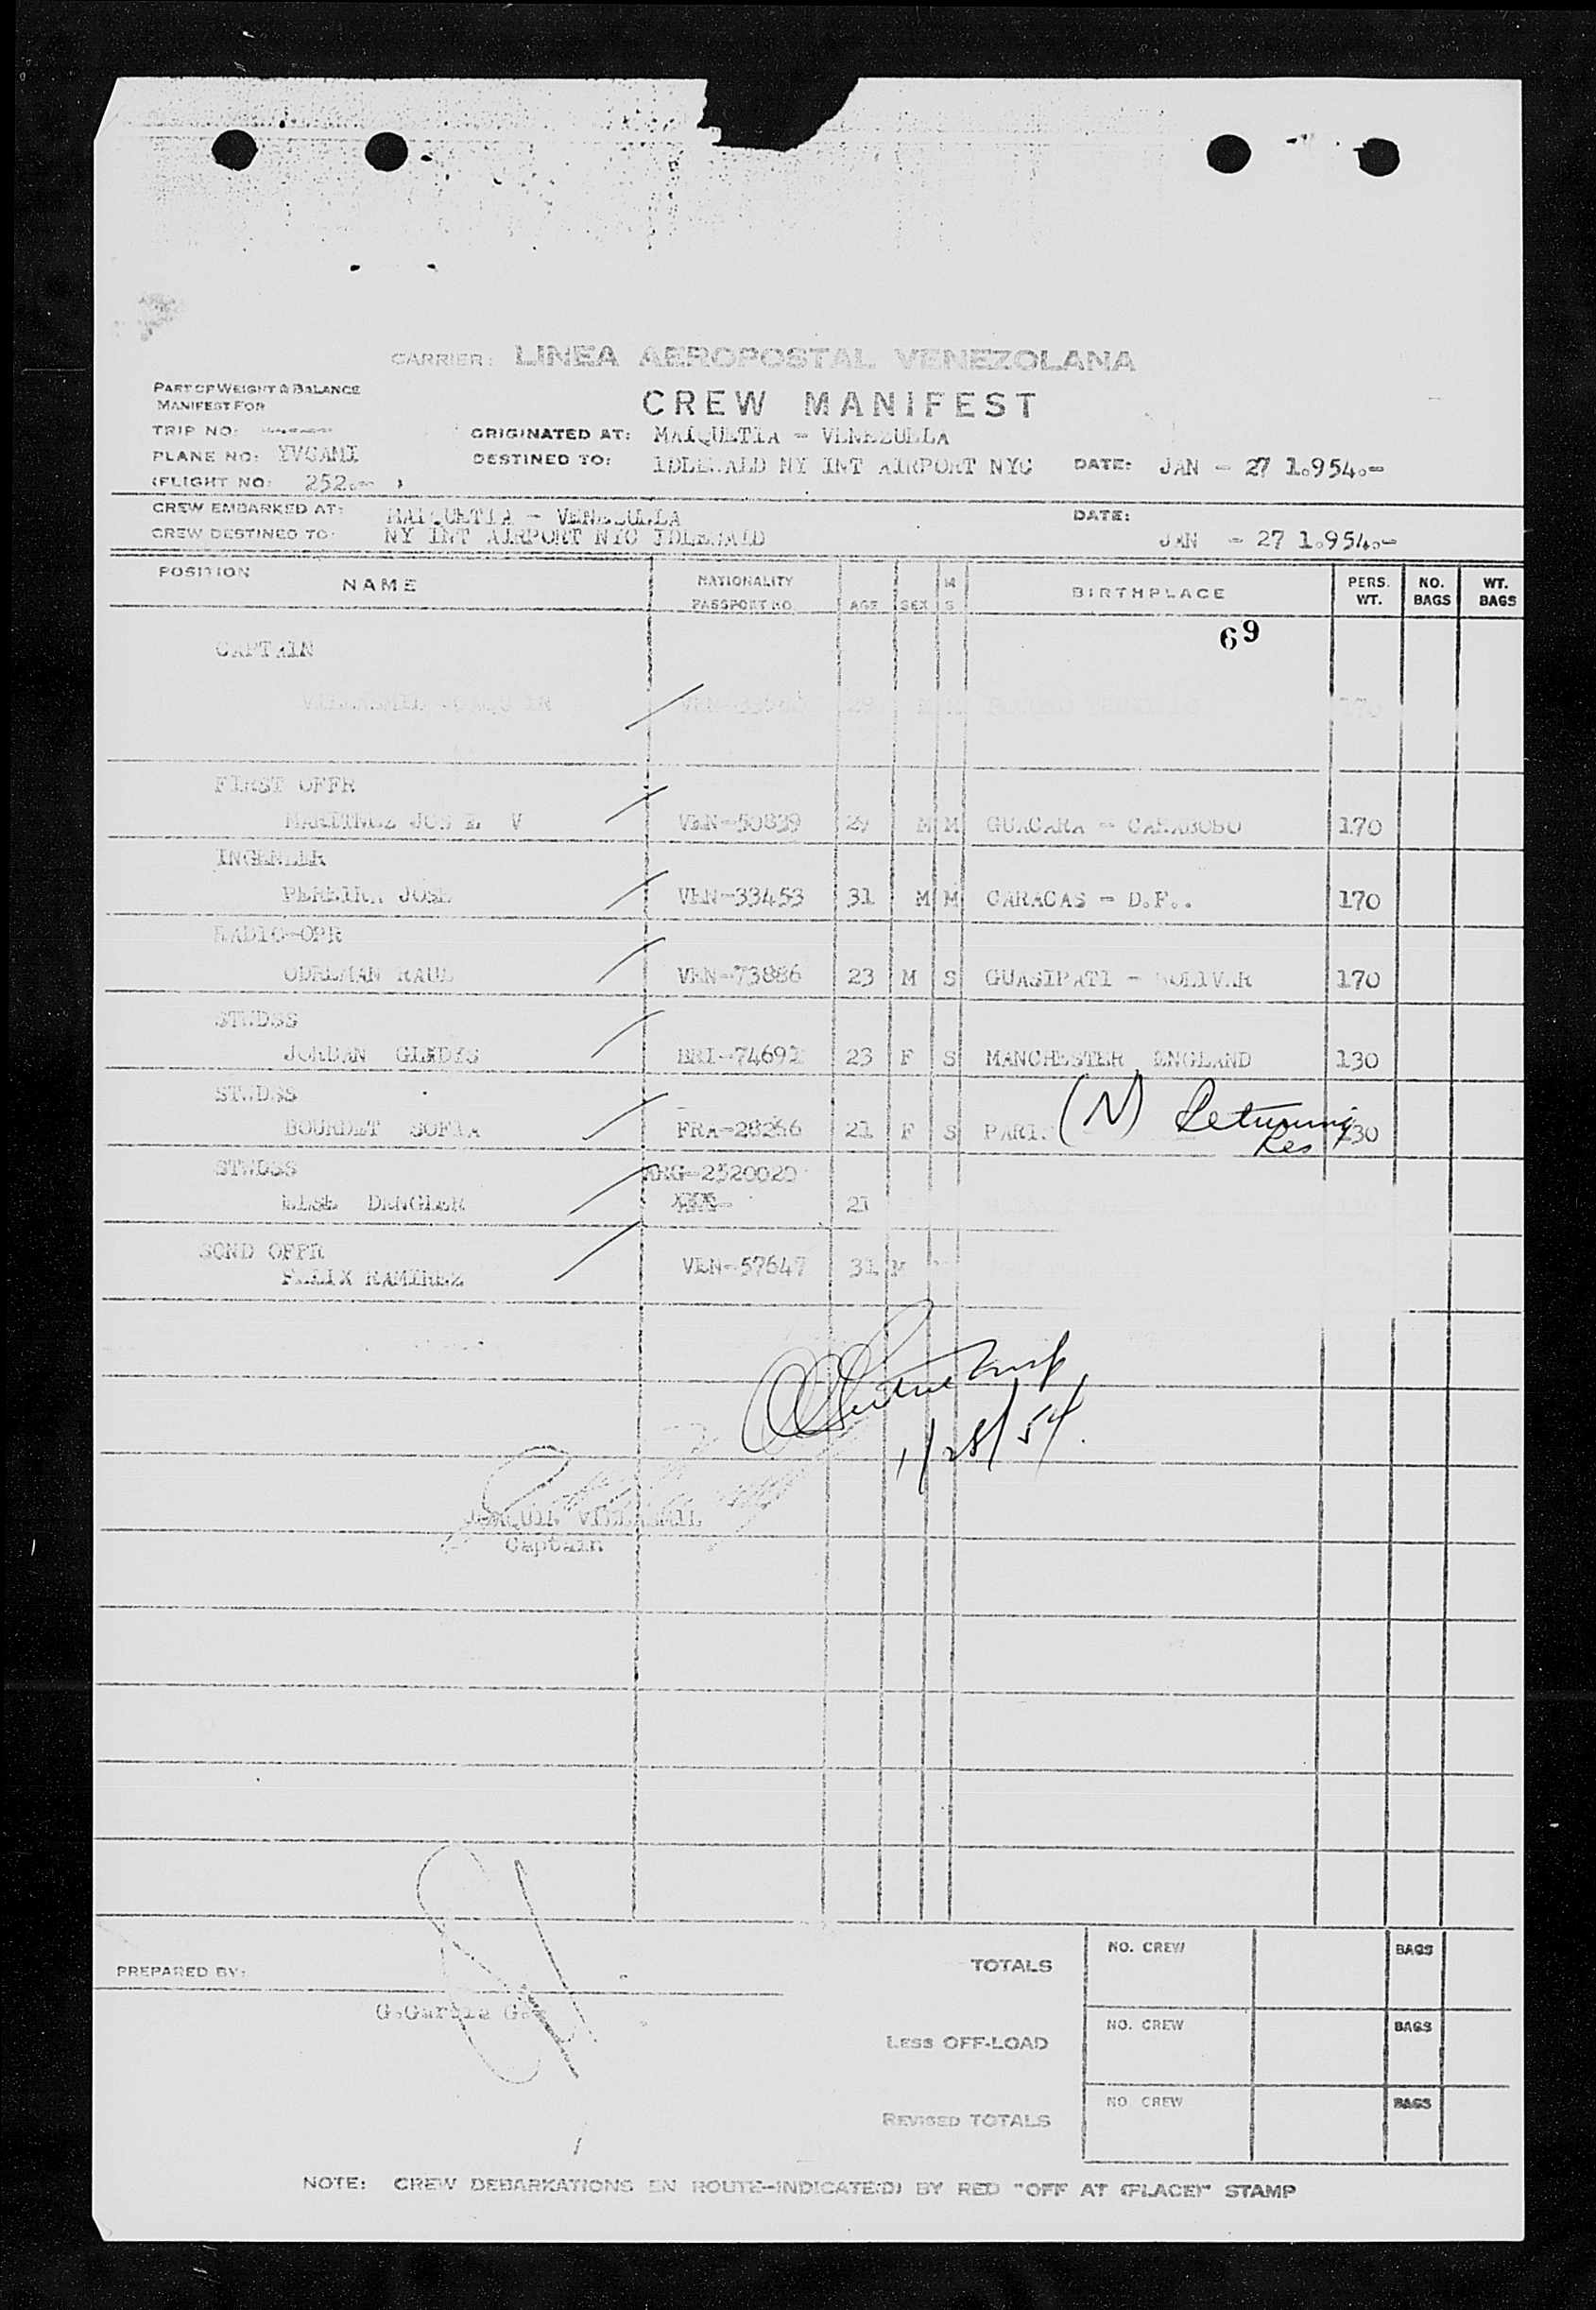 CARRIER: LINEA AEROPOSTAL VENEZOLANA
PART OF WEIGHT & BALANCE
MANIFEST FOR
CREW MANIFEST
TRIP NO:
ORIGINATED AT: MAIQUETIA - VENEZUELLA
PLANE NO: YVCAMI
DESTINED TO: IDLEWALD NY INT AIRPORT NYC DATE: JAN - 27 1.954.-
(FLIGHT NO: 252.- )
CREW EMBARKED AT: MAIQUETIA - VENEZUELLA DATE:
CREW DESTINED TO: NY INT AIRPORT NYC IDLEWALD JAN - 27 1.954.-
POSITION NAME NATIONALITY PASSPORT NO AGE SEX M S BIRTHPLACE PERS. WT. NO. BAGS WT. BAGS
69
CAPTAIN
170
FIRST OFFR
MARITNEZ JOS E V VEN-50839 29 M M GUACARA - CARABOBO 170
INGENEER
PEREIRA JOSE VEN-33453 31 M M CARACAS - D.F..
170
RADIO-OPR
ODREMAN RAUL VEN-73886 23 M S GUASIPATI - BOLIVAR 170
STWDSS
JORDAN GLADYS BRI-74691 23 F S MANCHESTER ENGLAND 130
STWDSS
BOURDET SOFIA FRA-28266 21 F S PARIS (N) Returning Res 130
STWDSS ARG-2520020
ELSE DENGLER 21
SCND OFFR
FELIX RAMIREZ VEN-57647 31 M
1/28/54.
JOAQUIN VILLASMIL
Captain
PREPARED BY:
G.Garcia G.
TOTALS NO. CREW BAGS
LESS OFF-LOAD NO. CREW BAGS
REVISED TOTALS NO. CREW BAGS
NOTE: CREW DEBARKATIONS EN ROUTE-INDICATE(D) BY RED "OFF AT (PLACE)" STAMP